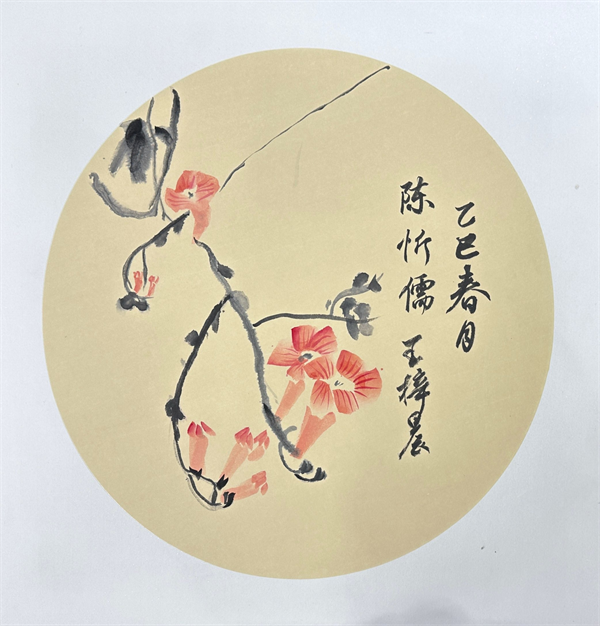 乙巳春月
陈忻儒 王梓晨